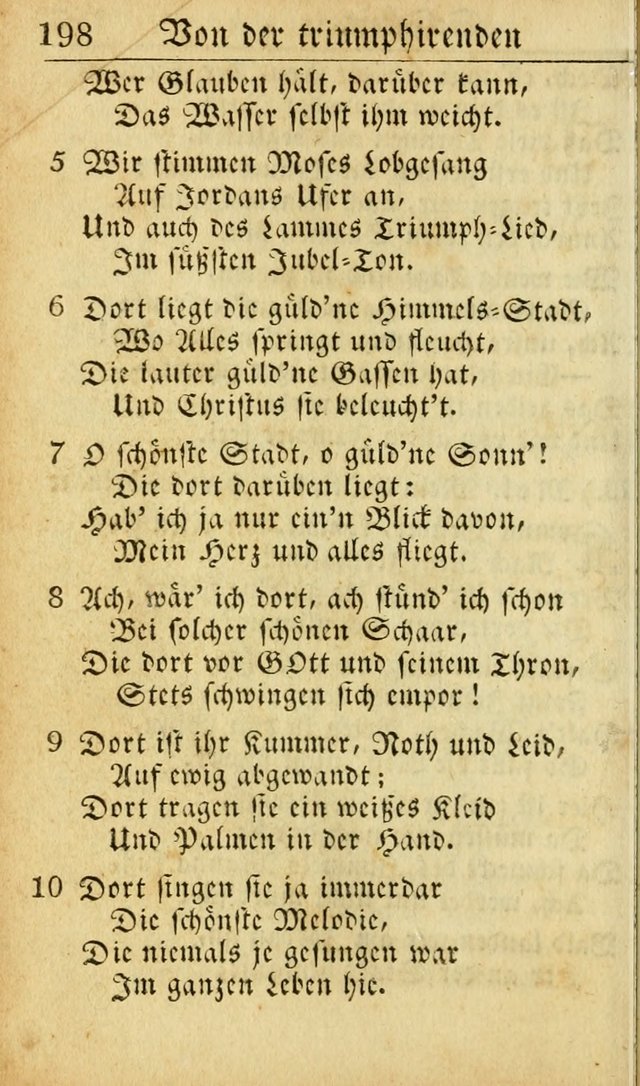 198 Von der triumphirenden
Wer Glauben hält, darüber kann,
Das Wasser selbst ihm weicht.
5 Wir stimmen Moses Lobgesang
Auf Jordans Ufer an,
Und auch des Lammes Triumph-Lied,
Im süßsten Jubel-Ton.
6 Dort liegt die güld'ne Himmels-Stadt,
Wo Alles springt und fleucht,
Die lauter güld'ne Gassen hat,
Und Christus sie beleucht't.
7 O schönste Stadt, o güld'ne Sonn'!
Die dort darüben liegt:
Hab' ich ja nur ein'n Blick davon,
Mein Herz und alles fliegt.
8 Ach, wär' ich dort, ach stünd' ich schon
Bei solcher schönen Schaar,
Die dort vor GOtt und seinem Thron,
Stets schwingen sich empor!
9 Dort ist ihr Kummer, Noth und Leid,
Auf ewig abgewandt;
Dort tragen sie ein weißes Kleid
Und Palmen in der Hand.
10 Dort singen sie ja immerdar
Die schönste Melodie,
Die niemals je gesungen war
Im ganzen Leben hie.